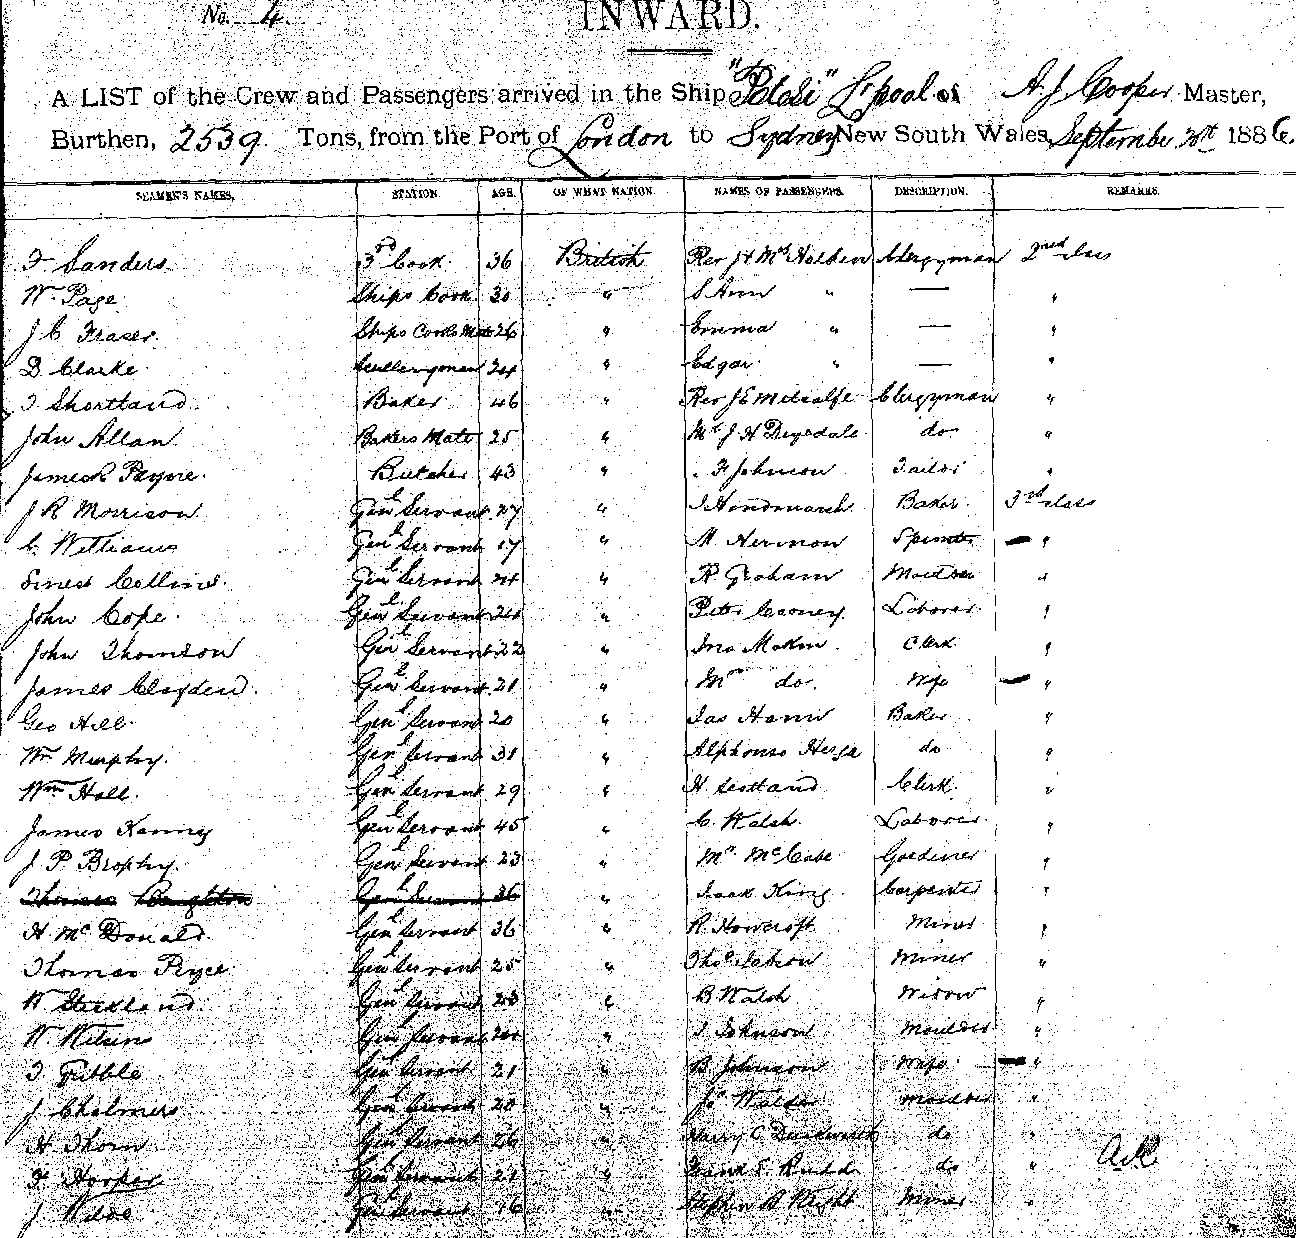 No. 4.
INWARD.
A LIST of the Crew and Passengers arrived in the Ship "Potosi" L'pool of A. J. Cooper Master,
Burthen, 2539. Tons, from the Port of London to Sydney New South Wales, September 1886.
SEAMEN'S NAMES, STATION. AGE. OF WHAT NATION. NAMES OF PASSENGERS. DESCRIPTION. REMARKS.
Sanders 3rd Cook. 36 British Rev J & Mrs Holden Clergyman 2nd class
Wm Page Ships Cook 30 " S Ann " — "
J C Fraser. Ships Cooks Mate 26 " Emma " — "
D Clarke Sculleryman 24 " Edgar " — "
T Shortland Baker 46 " Rev J E Metcalfe Clergyman "
John Allan Bakers Mate 25 " Mr J H Drysdale do "
James R Payne. Butcher 43 " F Johnson Tailor "
J R Morrison Genl Servant 27 " J Hindmarsh Baker 3rd class
C Williams Genl Servant 17 " M Hermon "
Ernest Collins. Genl Servant " R Graham Moulder "
John Cope. Genl Servant " Peter Cooney Laborer "
John Thomson Genl Servant 22 " Jno Makin Clerk "
James Clayden. Genl Servant 21 " Mrs do. Wife "
Geo Hill Genl Servant 20 " Jas Hann Baker "
Wm Murphy. Genl Servant 31 " Alphonso do "
Wm Hall. Genl Servant 29 " H Scotland Clerk. "
James Kenny Genl Servant 45 " C. Walsh Laborer "
J P Brophy. Genl Servant 23 " McCabe Gardener "
Thomas Genl Servant 36 " Isaak King Carpenter "
H McDonald Genl Servant 36 " R Howcroft Miner "
Thomas Pryce Genl Servant 25 " Thos Miner "
W Strickland Genl Servant 23 " B Walsh Widow "
W. Wilson Genl Servant " J Johnson Moulder "
T Tibble Genl Servant 21 " B Johnson Wife "
J Chalmers Genl Servant 20 " Moulder "
H Thorn Genl Servant 26 " Harry C Duckworth do "
Hooper Genl Servant 21 " Frank E. Rudd do "
J Genl Servant 16 " Stephen B Wright Miner "